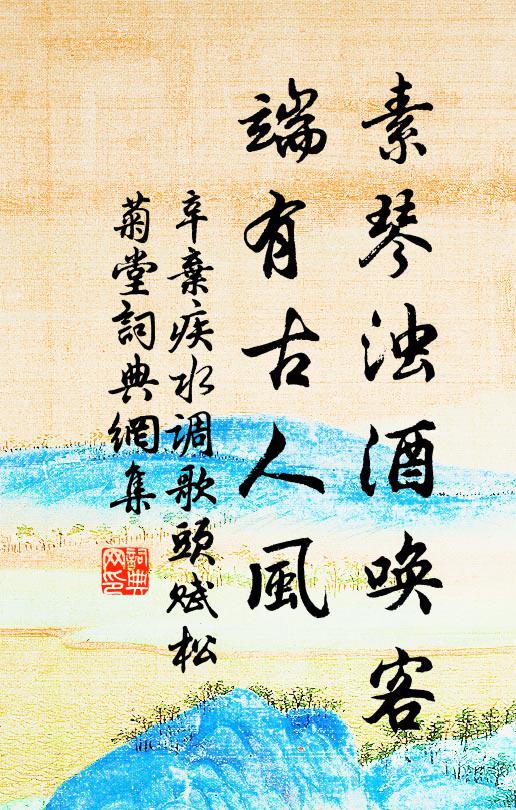 素琴浊酒唤客
端有古人風
辛棄疾水调歌頭赋松
菊堂詞典網集
詞典網印